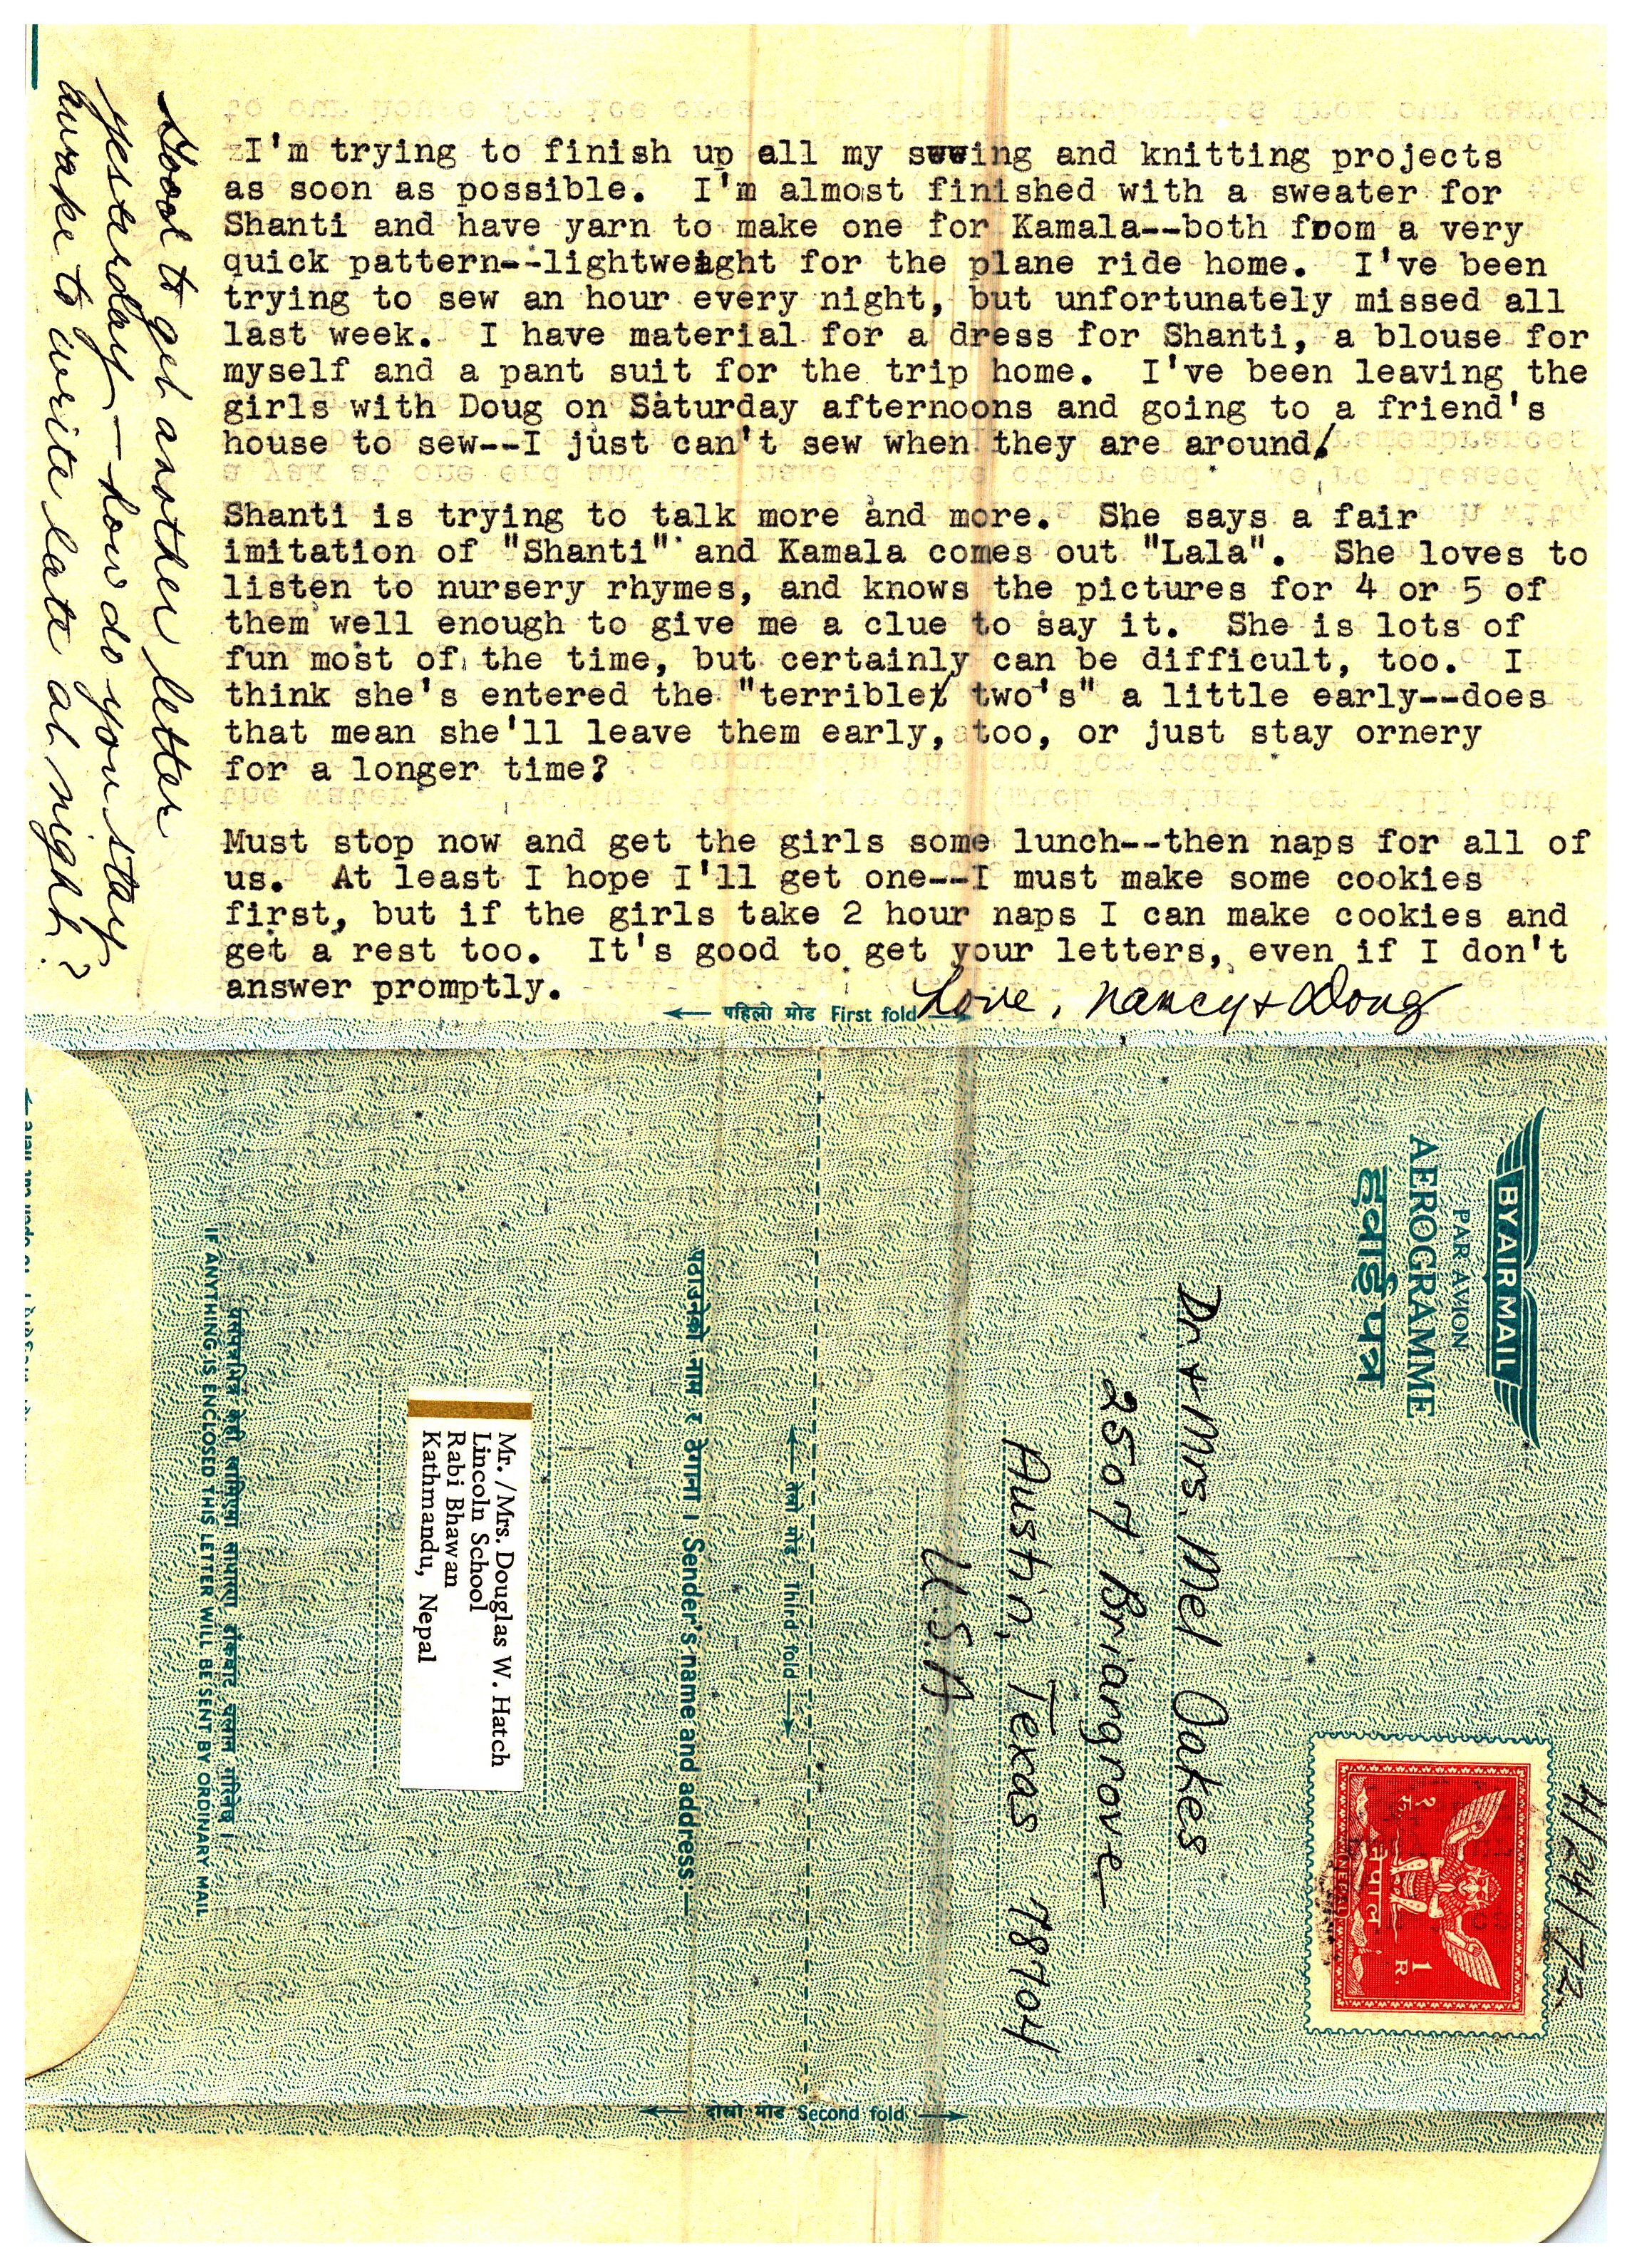 I'm trying to finish up all my sewing and knitting projects
as soon as possible. I'm almost finished with a sweater for
Shanti and have yarn to make one for Kamala--both from a very
quick pattern--lightweight for the plane ride home. I've been
trying to sew an hour every night, but unfortunately missed all
last week. I have material for a dress for Shanti, a blouse for
myself and a pant suit for the trip home. I've been leaving the
girls with Doug on Saturday afternoons and going to a friend's
house to sew--I just can't sew when they are around!
Shanti is trying to talk more and more. She says a fair
imitation of "Shanti" and Kamala comes out "Lala". She loves to
listen to nursery rhymes, and knows the pictures for 4 or 5 of
them well enough to give me a clue to say it. She is lots of
fun most of the time, but certainly can be difficult, too. I
think she's entered the "terrible two's" a little early--does
that mean she'll leave them early, too, or just stay ornery
for a longer time?
Must stop now and get the girls some lunch--then naps for all of
us. At least I hope I'll get one--I must make some cookies
first, but if the girls take 2 hour naps I can make cookies and
get a rest too. It's good to get your letters, even if I don't
answer promptly.
Love, Nancy & Doug
Good to get another letter
yesterday — how do you stay
awake to write late at night?
← पहिलो मोड First fold →
BY AIR MAIL
PAR AVION
AEROGRAMME
हवाई पत्र
4/24/72
२५
1 R.
नेपाल
NEPAL
Dr & Mrs. Mel Oakes
2507 Briangrove
Austin, Texas 78704
U.S.A.
← तेस्रो मोड Third fold →
पठाउनेको नाम र ठेगाना । Sender's name and address
Mr./Mrs. Douglas W. Hatch
Lincoln School
Rabi Bhawan
Kathmandu, Nepal
IF ANYTHING IS ENCLOSED THIS LETTER WILL BE SENT BY ORDINARY MAIL
← दोस्रो मोड Second fold →